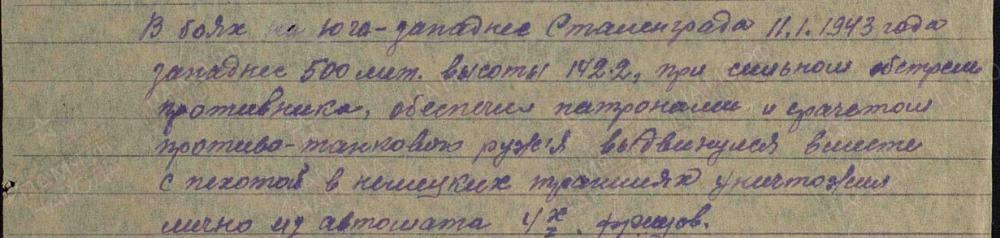 В боях на юго-западнее Сталинграда 11.1.1943 года
западнее 500 мет. высоты 142.2, при сильном обстреле
противника, обеспечил патронами и расчетом
противо-танкового ружья выдвинулся вместе
с пехотой в немецких траншеях уничтожил
лично из автомата 4х фрицов.